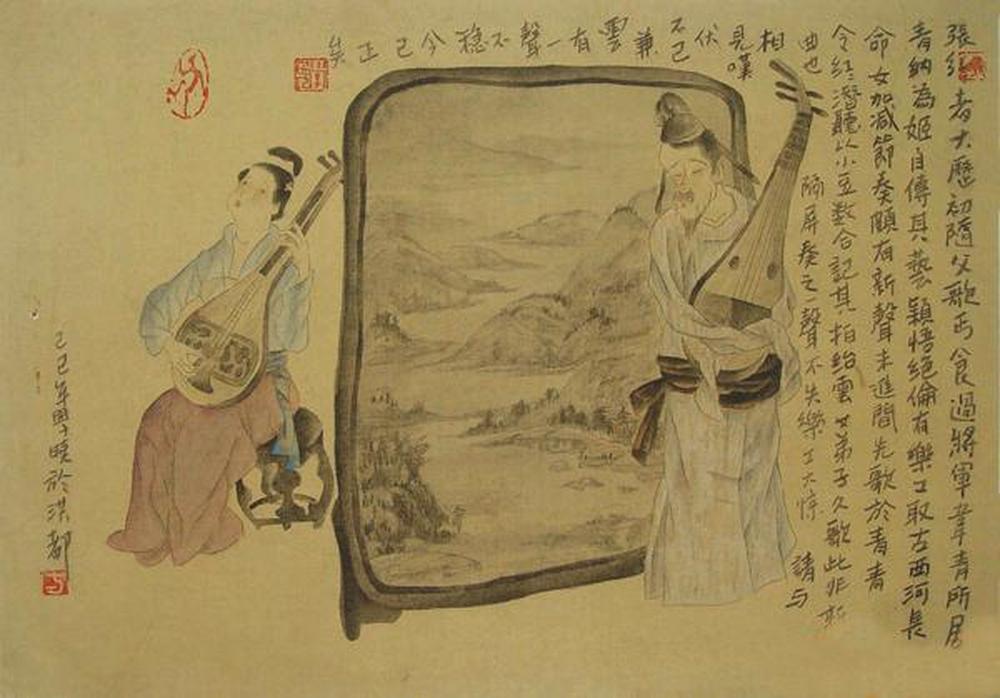 張紅者大歷初隨父歌丐食過將軍韋青所居
青納為姬自傳其藝穎悟絕倫有樂工取古西河長
命女加減節奏頗有新聲未進間先歌於青青
令紅潛聽以小豆數合記其拍紿雲女弟子久歌此非新
曲也隔屏奏之一聲不失樂工大惊請与
相見嘆伏不已兼雲有一聲不穩今已正矣
己巳年曉於洪都